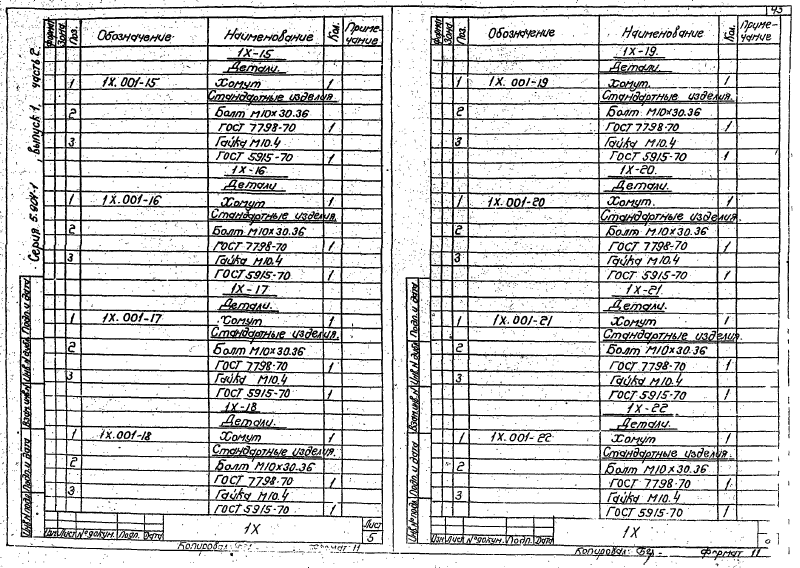 Серия 5.904-1, выпуск 1, часть 2.
Формат Зона Поз. Обозначение Наименование Кол. Приме-чание
1Х-15
Детали.
1 1Х.001-15 Хомут 1
Стандартные изделия.
2 Болт М10×30.36
ГОСТ 7798-70 1
3 Гайка М10.4
ГОСТ 5915-70 1
1Х-16
Детали
1 1Х.001-16 Хомут 1
Стандартные изделия.
2 Болт М10×30.36
ГОСТ 7798-70 1
3 Гайка М10.4
ГОСТ 5915-70 1
1Х-17
Детали.
1 1Х.001-17 Хомут 1
Стандартные изделия.
2 Болт М10×30.36
ГОСТ 7798-70 1
3 Гайка М10.4
ГОСТ 5915-70 1
1Х-18
Детали.
1 1Х.001-18 Хомут 1
Стандартные изделия.
2 Болт М10×30.36
ГОСТ 7798-70 1
3 Гайка М10.4
ГОСТ 5915-70 1
Инв.№подл. Подп. и дата Взам.инв.№ Инв.№дубл. Подп. и дата
Изм Лист №докум. Подп. Дата
1Х
Лист
5
Копировал:
Формат 11
43
Формат Зона Поз. Обозначение Наименование Кол. Приме-чание
1Х-19.
Детали.
1 1Х.001-19 Хомут. 1
Стандартные изделия.
2 Болт М10×30.36
ГОСТ 7798-70 1
3 Гайка М10.4
ГОСТ 5915-70 1
1Х-20.
Детали
1 1Х.001-20 Хомут. 1
Стандартные изделия.
2 Болт М10×30.36
ГОСТ 7798-70 1
3 Гайка М10.4
ГОСТ 5915-70 1
1Х-21.
Детали.
1 1Х.001-21 Хомут 1
Стандартные изделия.
2 Болт М10×30.36
ГОСТ 7798-70 1
3 Гайка М10.4
ГОСТ 5915-70 1
1Х-22
Детали.
1 1Х.001-22 Хомут 1
Стандартные изделия.
2 Болт М10×30.36
ГОСТ 7798-70 1
3 Гайка М10.4
ГОСТ 5915-70 1
Инв.№подл. Подп. и дата Взам.инв.№ Инв.№дубл. Подп. и дата
Изм Лист №докум. Подп. Дата
1Х
Копировал:
Формат 11